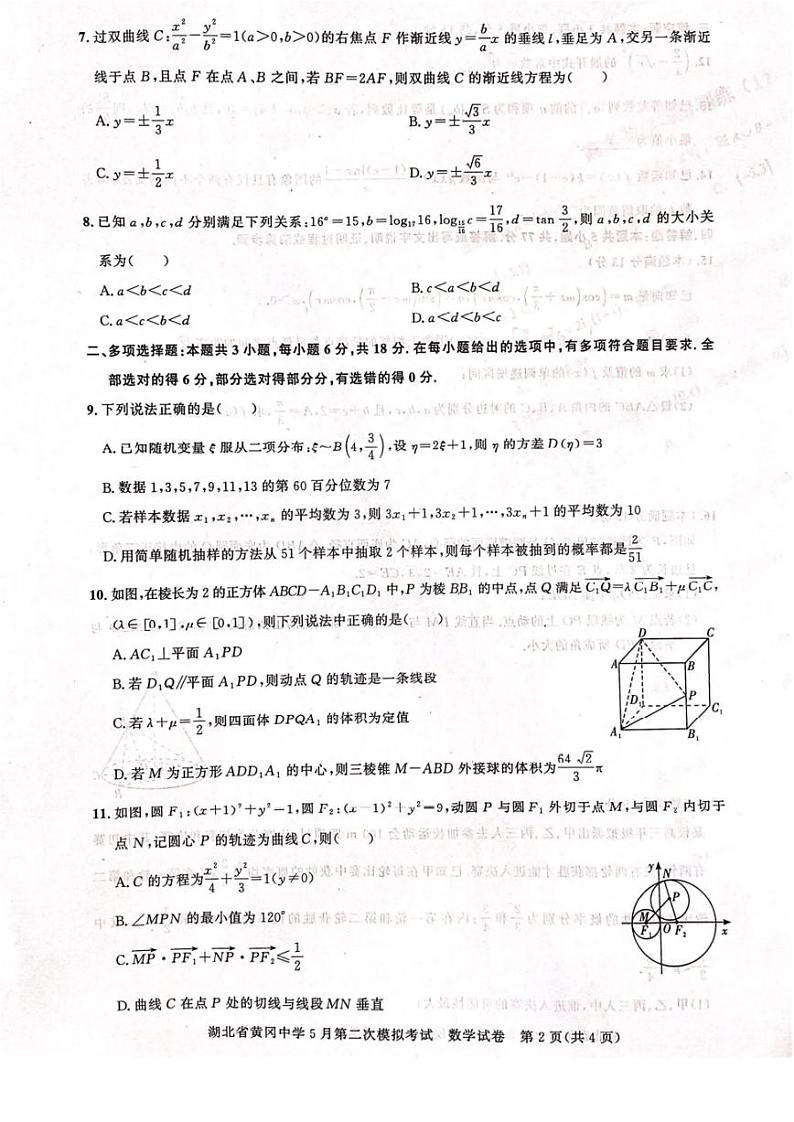 7.过双曲线 C:x²/a²-y²/b²=1(a>0,b>0)的右焦点 F 作渐近线 y=b/a x 的垂线 l,垂足为 A,交另一条渐近
线于点 B,且点 F 在点 A、B 之间,若 BF=2AF,则双曲线 C 的渐近线方程为(  )
A.y=±1/3 x B.y=±√3/3 x
C.y=±1/2 x D.y=±√6/3 x
8.已知 a,b,c,d 分别满足下列关系:16ᵃ=15,b=log₁₇16,log_(15/16) c=17/16,d=tan 3/2,则 a,b,c,d 的大小关
系为(  )
A.a<b<c<d B.c<a<b<d
C.a<c<b<d D.a<d<b<c
二、多项选择题:本题共 3 小题,每小题 6 分,共 18 分.在每小题给出的选项中,有多项符合题目要求.全
部选对的得 6 分,部分选对得部分分,有选错的得 0 分.
9.下列说法正确的是(  )
A.已知随机变量 ξ 服从二项分布:ξ~B(4,3/4),设 η=2ξ+1,则 η 的方差 D(η)=3
B.数据 1,3,5,7,9,11,13 的第 60 百分位数为 7
C.若样本数据 x₁,x₂,…,xₙ 的平均数为 3,则 3x₁+1,3x₂+1,…,3xₙ+1 的平均数为 10
D.用简单随机抽样的方法从 51 个样本中抽取 2 个样本,则每个样本被抽到的概率都是 2/51
10.如图,在棱长为 2 的正方体 ABCD-A₁B₁C₁D₁ 中,P 为棱 BB₁ 的中点,点 Q 满足 C₁Q→=λC₁B₁→+μC₁C→,
(λ∈[0,1],μ∈[0,1]),则下列说法中正确的是(  )
A.AC₁⊥平面 A₁PD
B.若 D₁Q∥平面 A₁PD,则动点 Q 的轨迹是一条线段
C.若 λ+μ=1/2,则四面体 DPQA₁ 的体积为定值
D.若 M 为正方形 ADD₁A₁ 的中心,则三棱锥 M-ABD 外接球的体积为 64√2/3 π
D C
A B
D₁ P C₁
A₁ B₁
11.如图,圆 F₁:(x+1)²+y²=1,圆 F₂:(x-1)²+y²=9,动圆 P 与圆 F₁ 外切于点 M,与圆 F₂ 内切于
点 N,记圆心 P 的轨迹为曲线 C,则(  )
A.C 的方程为 x²/4+y²/3=1(y≠0)
B.∠MPN 的最小值为 120°
C.MP→·PF₁→+NP→·PF₂→≤1/2
D.曲线 C 在点 P 处的切线与线段 MN 垂直
y N
P
M
F₁ O F₂ x
湖北省黄冈中学 5 月第二次模拟考试 数学试卷 第 2 页(共 4 页)